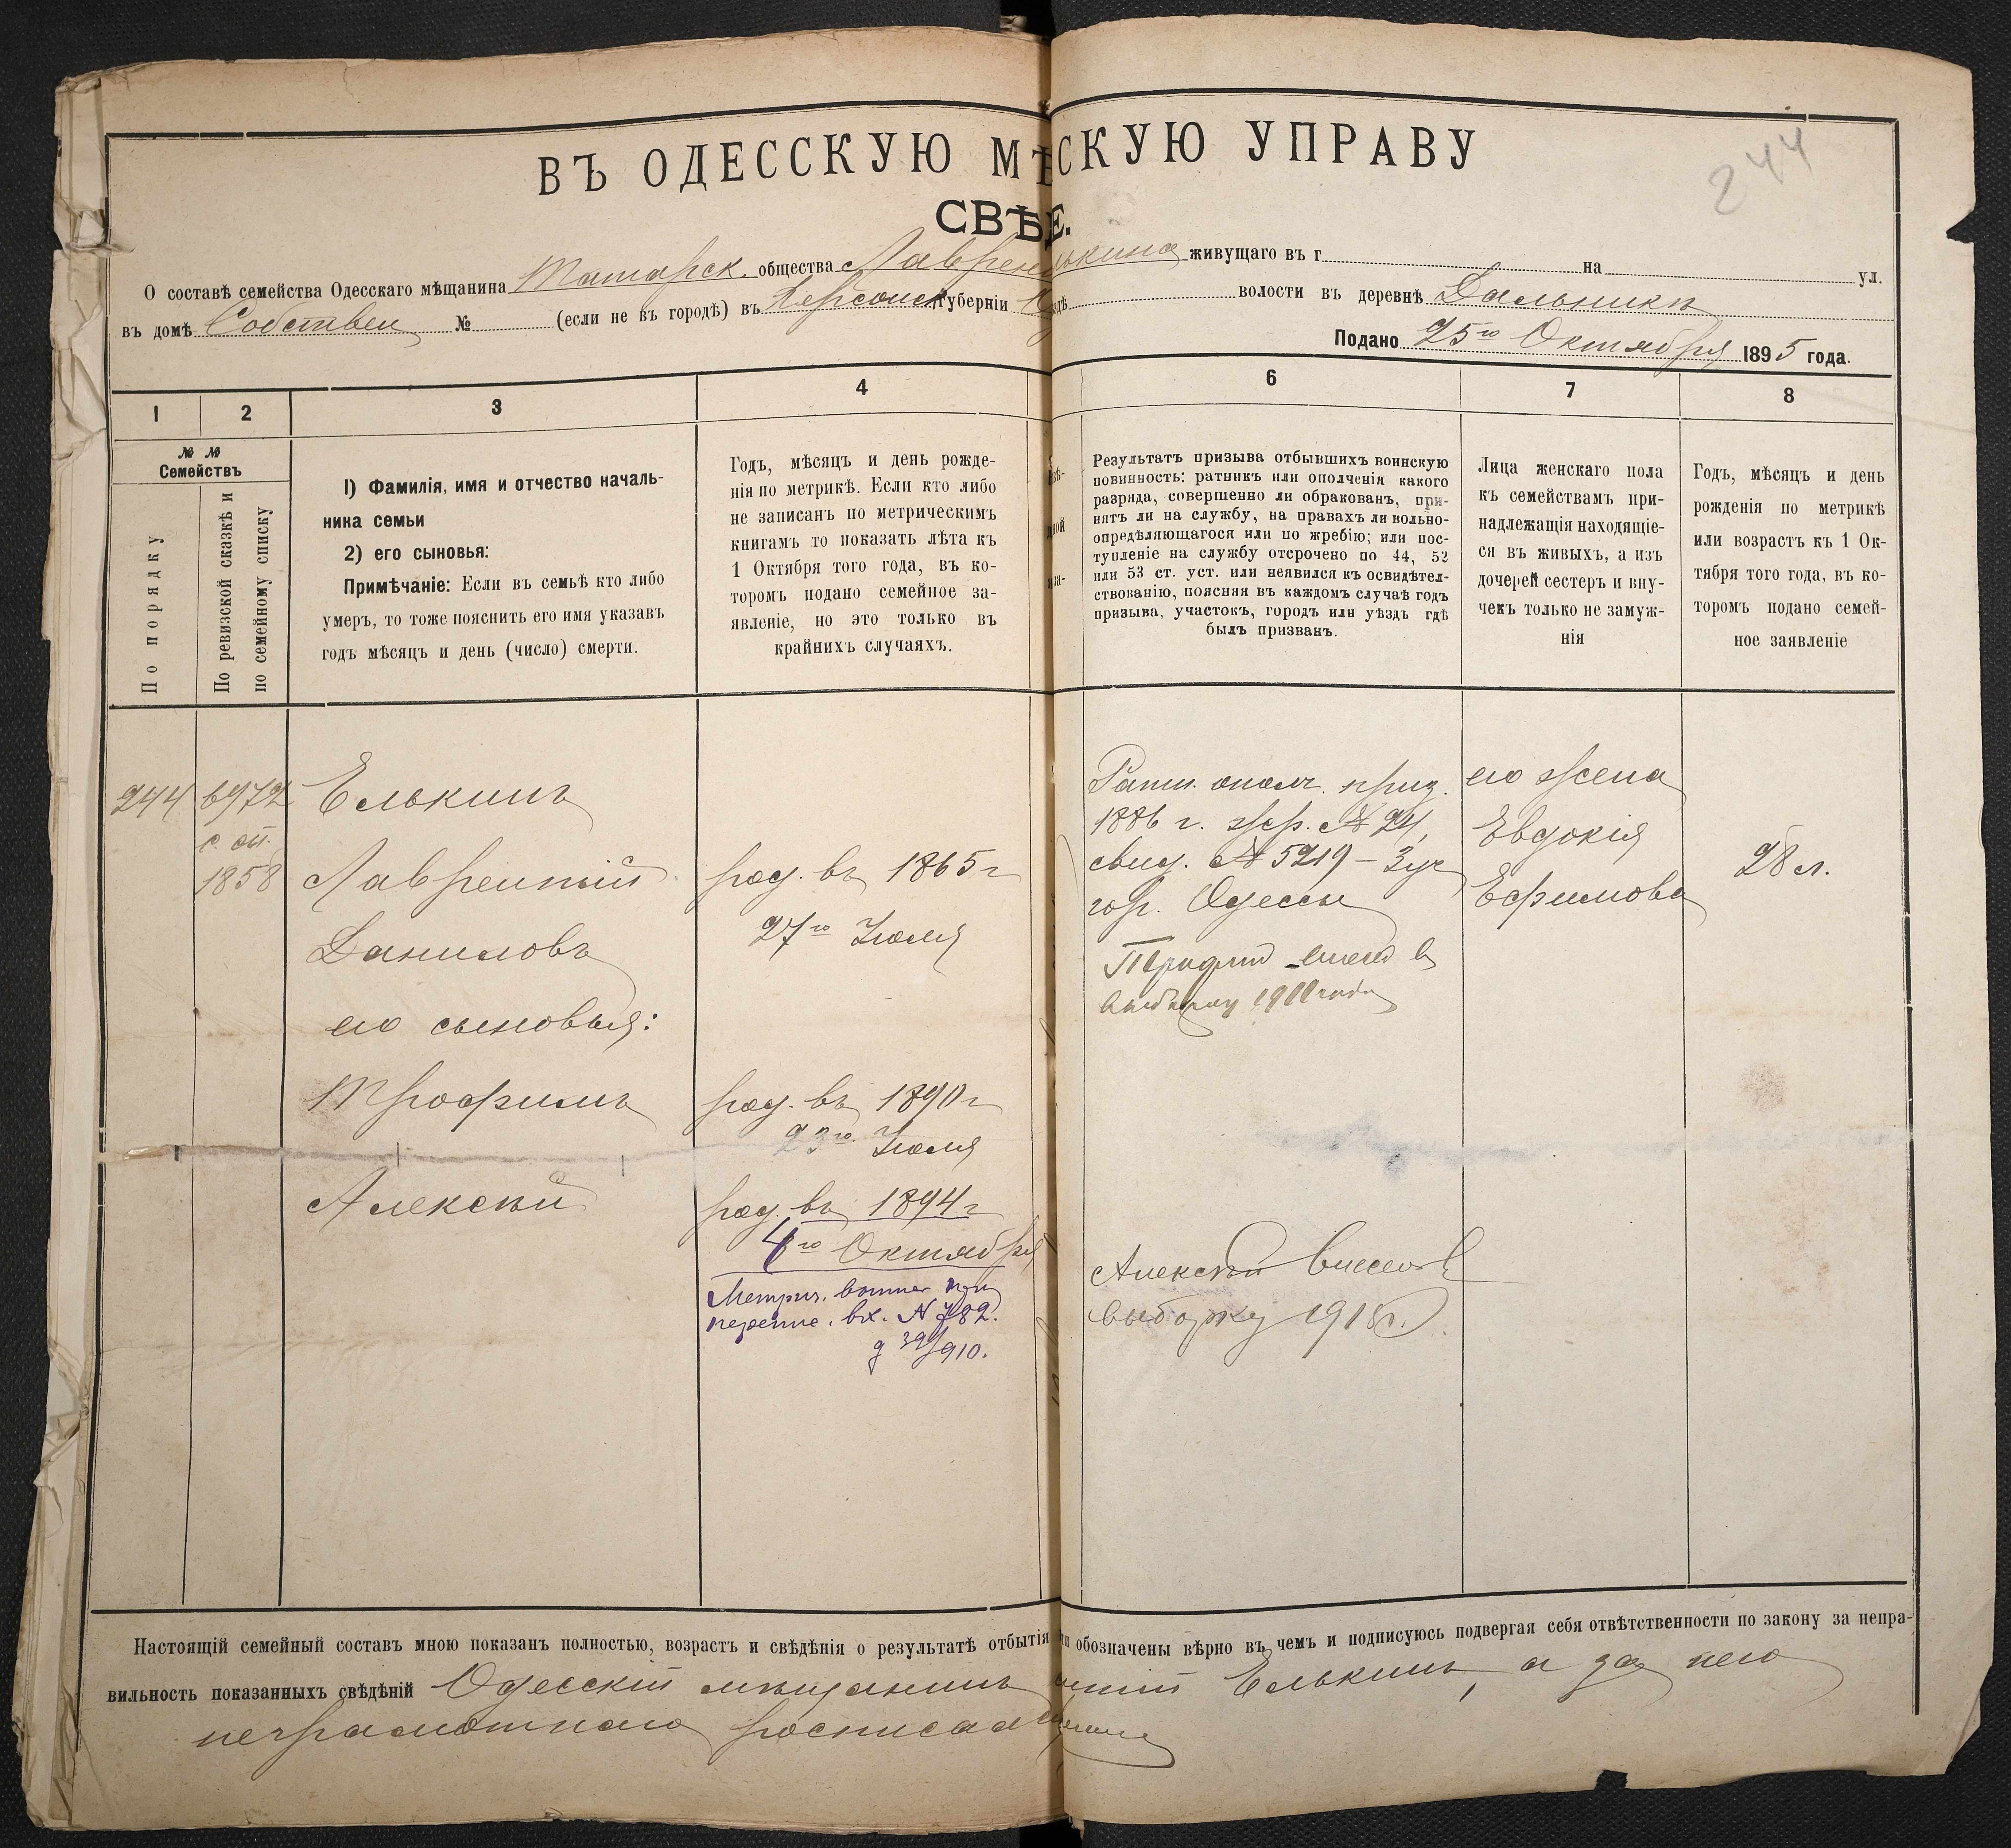 244
ВЪ ОДЕССКУЮ МѢСКУЮ УПРАВУ
СВѢЕ.
О составѣ семейства Одесскаго мѣщанина Татарск. общества Лаврен ькина живущаго въ г на ул.
въ домѣ Собствен № (если не въ городѣ) въ Херсонск губерніи волости въ деревнѣ Дальникъ
Подано 25го Октября 1895 года.
1 2 3 4 6 7 8
№ №
Семействъ
По порядку
По ревизской сказкѣ и
по семейному списку
1) Фамилія, имя и отчество началь-
ника семьи
2) его сыновья:
Примѣчаніе: Если въ семьѣ кто либо
умеръ, то тоже пояснить его имя указавъ
годъ мѣсяцъ и день (число) смерти.
Годъ, мѣсяцъ и день рожде-
нія по метрикѣ. Если кто либо
не записанъ по метрическимъ
книгамъ то показать лѣта къ
1 Октября того года, въ ко-
торомъ подано семейное за-
явленіе, но это только въ
крайнихъ случаяхъ.
Результатъ призыва отбывшихъ воинскую
повинность: ратникъ или ополченія какого
разряда, совершенно ли обракованъ, при-
нятъ ли на службу, на правахъ ли вольно-
опредѣляющагося или по жребію; или пос-
тупленіе на службу отсрочено по 44, 52
или 53 ст. уст. или неявился къ освидѣтел-
ствованію, поясняя въ каждомъ случаѣ годъ
призыва, участокъ, городъ или уѣздъ гдѣ
былъ призванъ.
Лица женскаго пола
къ семействамъ при-
надлежащія находящіе-
ся въ живыхъ, а изъ
дочерей сестеръ и вну-
чекъ только не замуж-
нія
Годъ, мѣсяцъ и день
рожденія по метрикѣ
или возрастъ къ 1 Ок-
тября того года, въ ко-
торомъ подано семей-
ное заявленіе
244
6972
с. ст.
1858
Елькинъ
Лаврентій
Даниловъ
его сыновья:
Трофимъ
Алексѣй
род. въ 1865 г
27го Іюля
род. въ 1890 г
23го Іюля
род. въ 1894 г
4го Октября
Метрич. при
вх. N 782.
д 394/910.
Ратн. ополч. приз.
1886 г. жр. № 24,
свид. № 5219 – 3 уч
гор. Одессы
1911 года
Алексѣй внесенъ в
выборку 1915 г.
его жена
Евдокія
Ефимова
28 л.
Настоящій семейный составъ мною показанъ полностью, возрастъ и свѣдѣнія о результатѣ отбытія ти обозначены вѣрно въ чемъ и подписуюсь подвергая себя отвѣтственности по закону за непра-
вильность показанныхъ свѣдѣній Одесскій мѣщанинъ ентій Елькинъ, а за него
неграмотнаго росписался